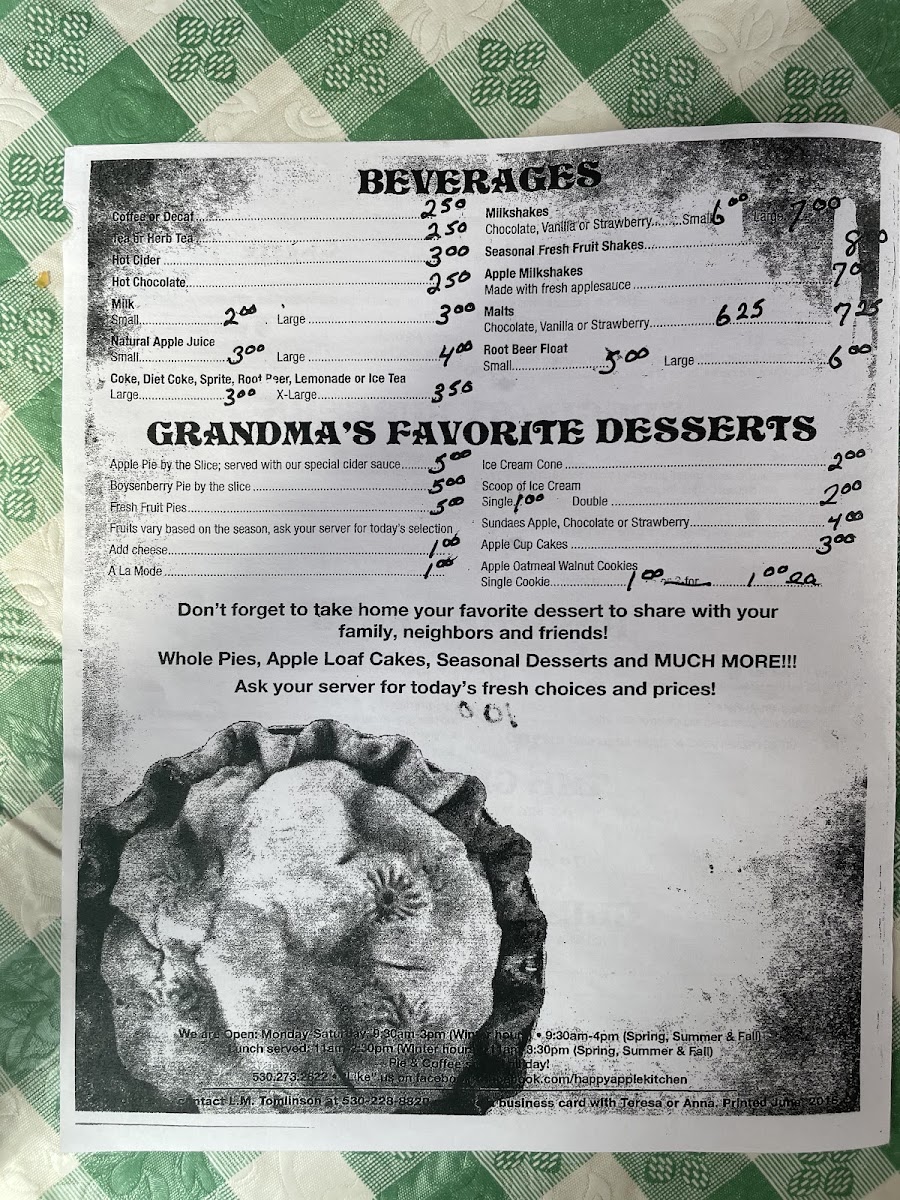 BEVERAGES
Coffee or Decaf 2 50
Tea or Herb Tea 2 50
Hot Cider 3 00
Hot Chocolate 2 50
Milk
Small 2 00 Large 3 00
Natural Apple Juice
Small 3 00 Large 4 00
Coke, Diet Coke, Sprite, Root Beer, Lemonade or Ice Tea
Large 3 00 X-Large 3 50
Milkshakes
Chocolate, Vanilla or Strawberry Small 6 00 Large 7 00
Seasonal Fresh Fruit Shakes 8
Apple Milkshakes
Made with fresh applesauce 7 00
Malts
Chocolate, Vanilla or Strawberry 6 25 7 25
Root Beer Float
Small 5 00 Large 6 00
GRANDMA'S FAVORITE DESSERTS
Apple Pie by the Slice; served with our special cider sauce 5 00
Boysenberry Pie by the slice 5 00
Fresh Fruit Pies 5 00
Fruits vary based on the season, ask your server for today's selection
Add cheese 1 00
A La Mode 1 00
Ice Cream Cone 2 00
Scoop of Ice Cream
Single 1 00 Double 2 00
Sundaes Apple, Chocolate or Strawberry 4 00
Apple Cup Cakes 3 00
Apple Oatmeal Walnut Cookies
Single Cookie 1 00 2 for 1 00 ea
Don't forget to take home your favorite dessert to share with your
family, neighbors and friends!
Whole Pies, Apple Loaf Cakes, Seasonal Desserts and MUCH MORE!!!
Ask your server for today's fresh choices and prices!
We are Open: Monday-Saturday, 9:30am-3pm (Winter hours) • 9:30am-4pm (Spring, Summer & Fall)
Lunch served: 11am (Winter hours) 3:30pm (Spring, Summer & Fall)
Pie & Coffee
530.273.2822 • "Like" us on facebook facebook.com/happyapplekitchen
contact L.M. Tomlinson at 530-228-8829 business card with Teresa or Anna. Printed June, 2015